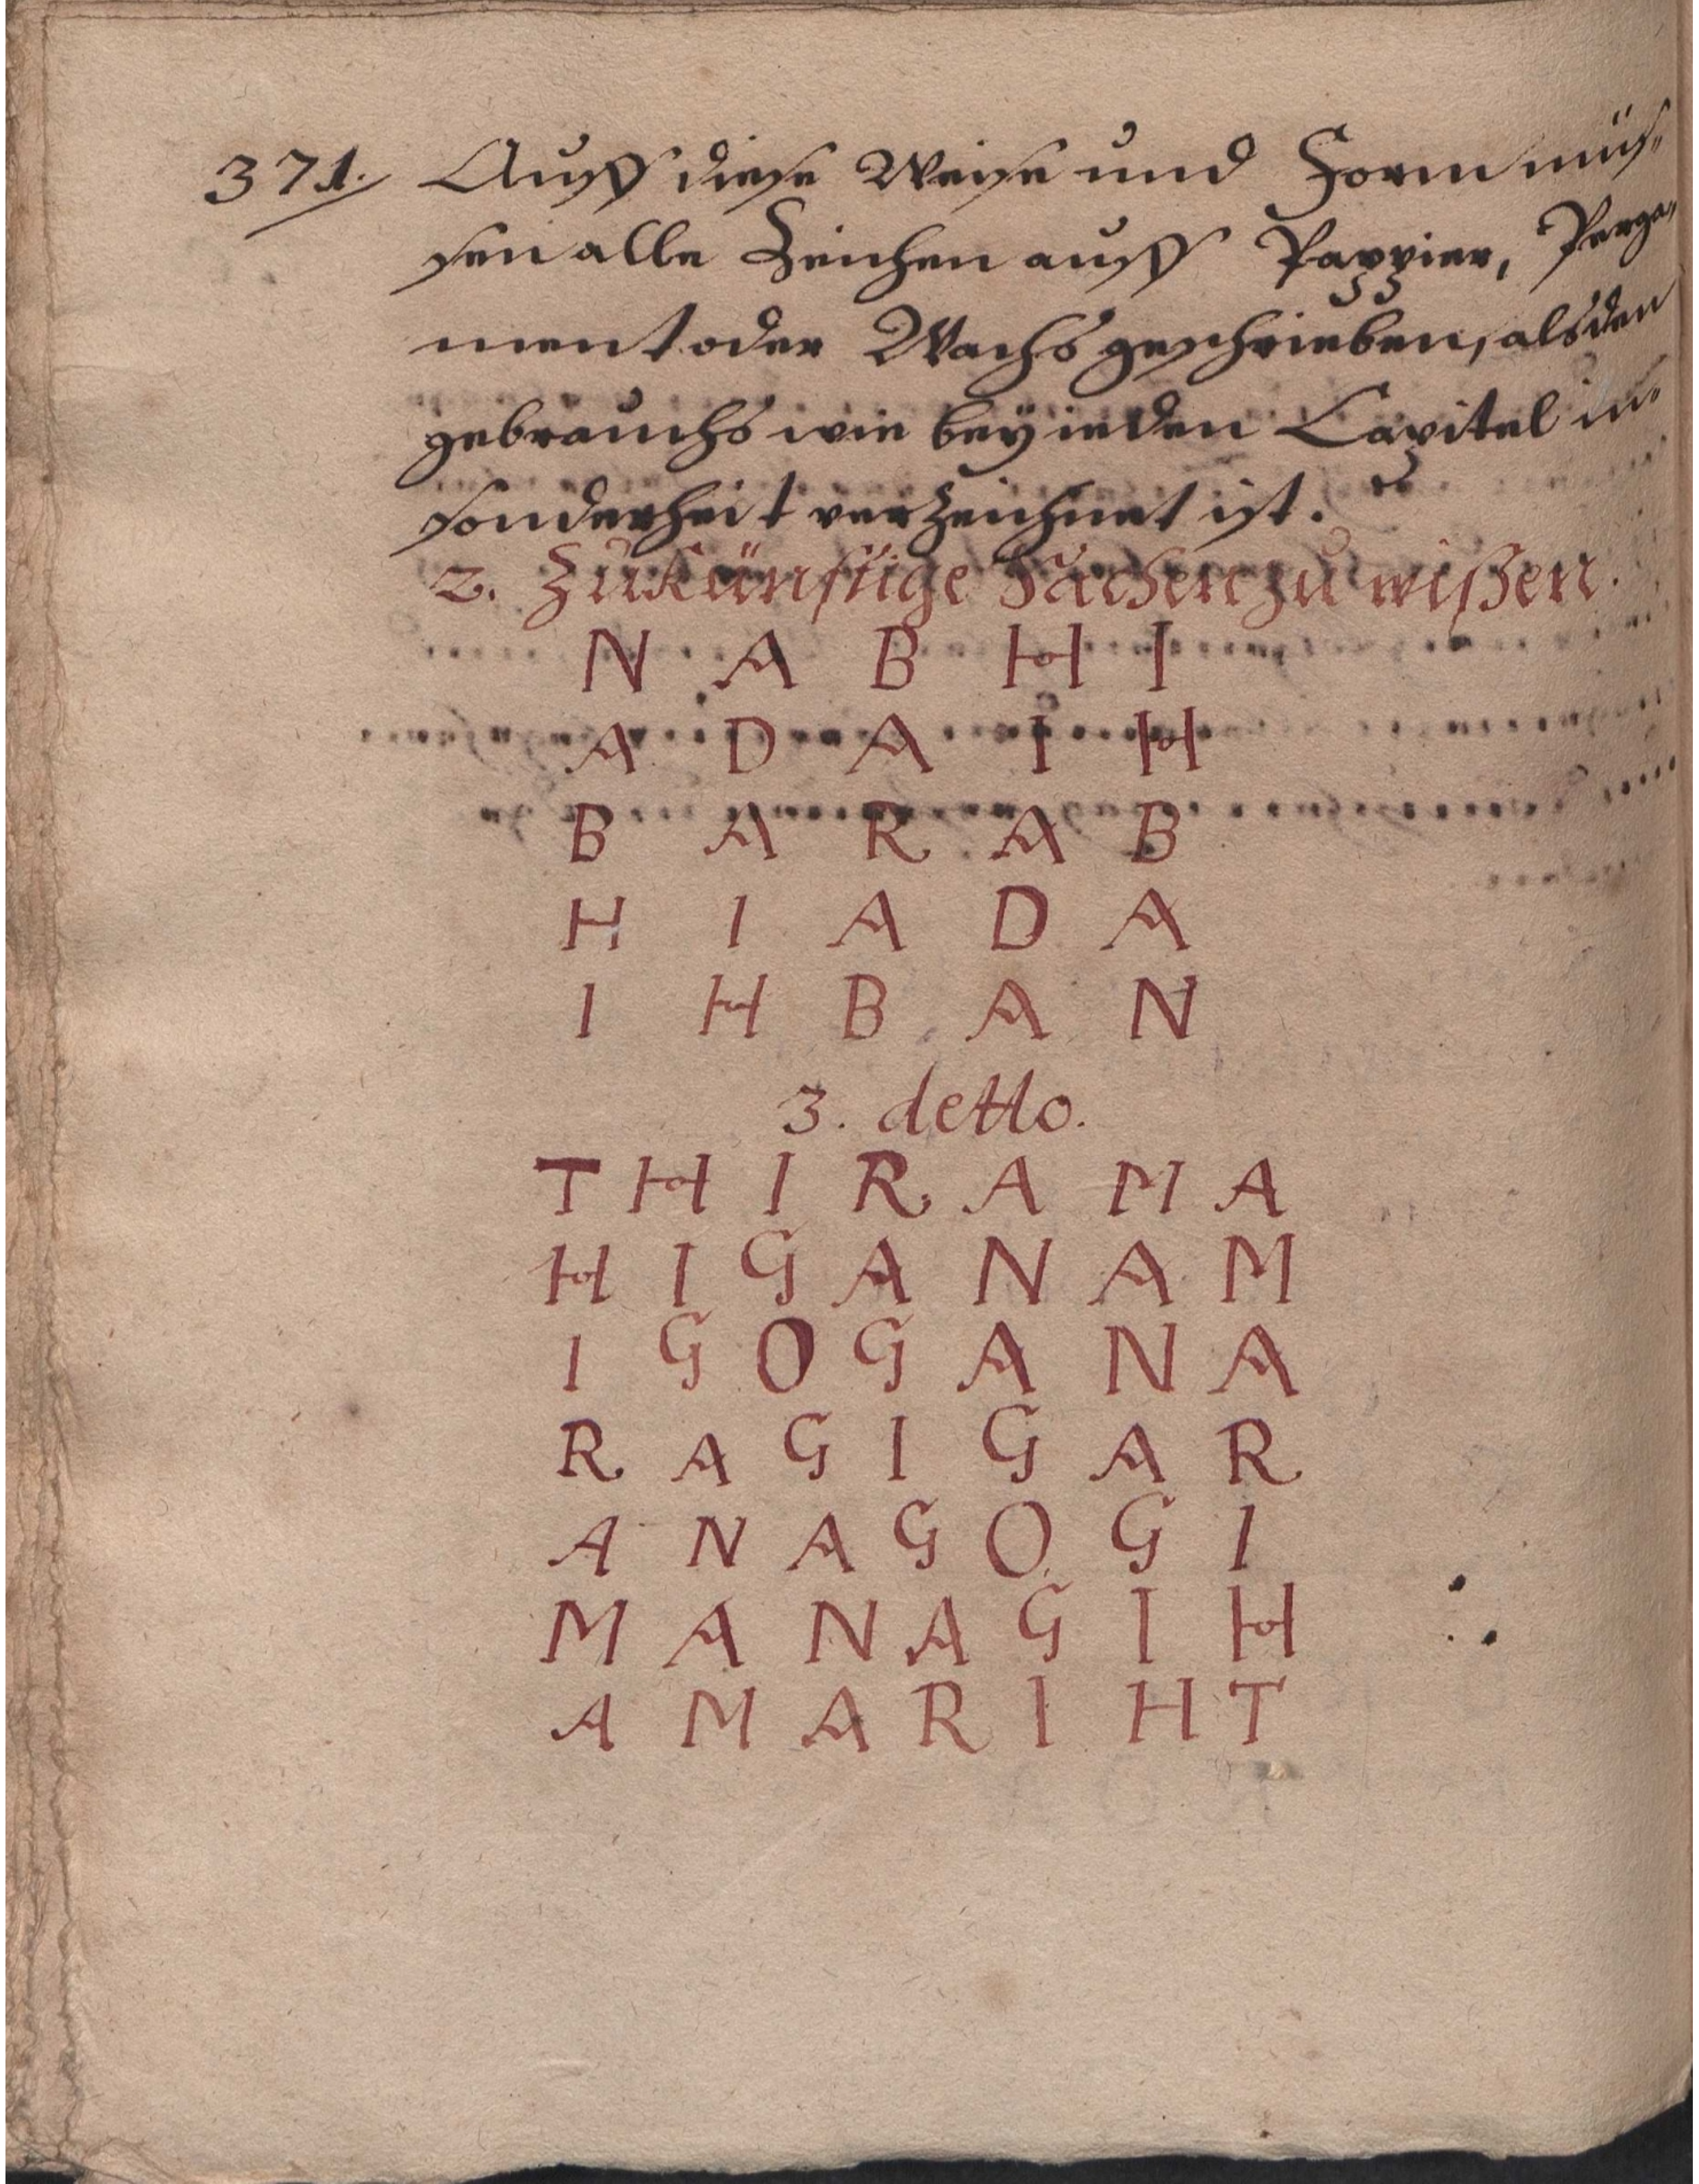 371. Auff diese Weise und Form müs-
sen alle Zeichen auff Pappier, Perga-
ment oder Wachs geschrieben, als den
gebrauchs wie bey ieden Capitel in-
sonderheit verzeichnet ist.
2. Zukünfftige Sachen zu wißen.
N A B H I
A D A I H
B A R A B
H I A D A
I H B A N
3. detto.
T H I R A M A
H I G A N A M
I G O G A N A
R A G I G A R
A N A G O G I
M A N A G I H
A M A R I H T